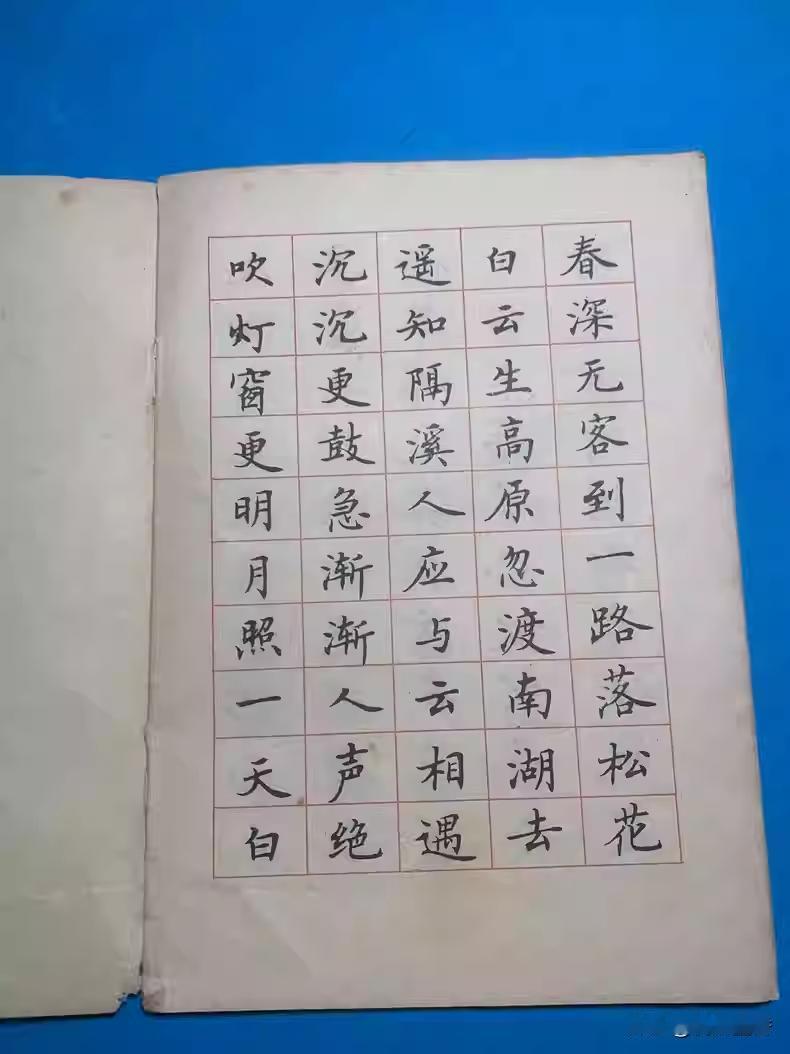 春深无客到一路落松花
白云生高原忽渡南湖去
遥知隔溪人应与云相遇
沉沉更鼓急渐渐人声绝
吹灯窗更明月照一天白